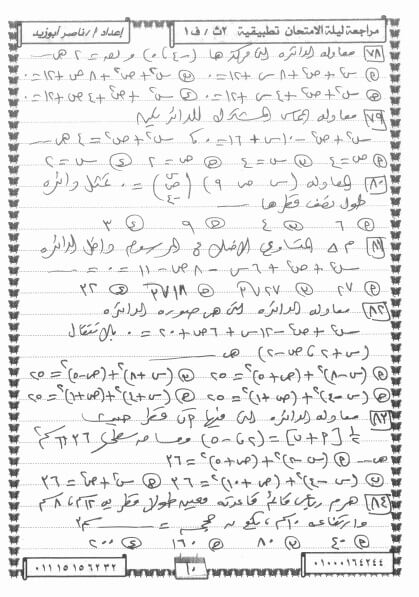 مراجعة ليلة الامتحان تطبيقية ٢ث / ف١
إعداد أ / ناصر أبوزيد
٧٨ معادلة الدائرة التى مركزها (-٤ ، ٠) و نصـ = ٢ هى ---
أ س٢ + ص٢ + ٨س + ١٢ = ٠ ب س٢ + ص٢ + ٨ص + ١٢ = ٠
ج س٢ + ص٢ + ٤س + ١٢ = ٠ د س٢ + ص٢ + ٤ص + ١٢ = ٠
٧٩ معادلة المماس المشترك للدائرتين
س٢ + ص٢ - ١٠س + ١٦ = ٠ ، س٢ + ص٢ = ٤ هى ---
أ ص = ٤ ب س = ٤ ج ص = ٢ د س = ٢
٨٠ المعادلة (س ص ٩) (س ص -٤) = ٠ تمثل دائرة
طول نصف قطرها ---
أ ٦ ب ٤ ج ٩ د ٣
٨١ م △ المتساوى الأضلاع المرسوم داخل الدائرة
س٢ + ص٢ + ٦س - ٨ص - ١١ = ٠ = ---
أ ٢٧ ب ٢٧√٢ ج ١٨√٣ د ٣٢
٨٢ معادلة الدائرة التى هى صورة الدائرة
س٢ + ص٢ - ١٢س + ٦ص + ٢٠ = ٠ بالانتقال
(س + ٢ ، ص - ٢) هى ---
أ (س - ٨)٢ + (ص + ٥)٢ = ٢٥ ب (س + ٨)٢ + (ص - ٥)٢ = ٢٥
ج (س - ٤)٢ + (ص + ١)٢ = ٢٥ د (س + ٤)٢ + (ص + ١)٢ = ٢٥
٨٣ معادلة الدائرة التى فيها أب قطر حيث
١/٢ [أ + ب] = (٢ ، -٥) ومساحة سطحها ٣٦ ط سم٢
هى --- أ (س - ٢)٢ + (ص + ٥)٢ = ٣٦
ب (س - ٤)٢ + (ص + ١٠)٢ = ٣٦ ج س٢ + ص٢ = ٣٦
٨٤ هرم رباعى قائم قاعدته معين طولا قطريه ١٢سم ، ٨سم
وارتفاعه ١٠سم يكون حجمه = --- سم٣
أ ٤٠ ب ٨٠ ج ١٦٠ د ٢٠٠
٠١٠٠٠١٦٤٢٤٤
١٠
٠١١١٥١٥٦٢٣٢